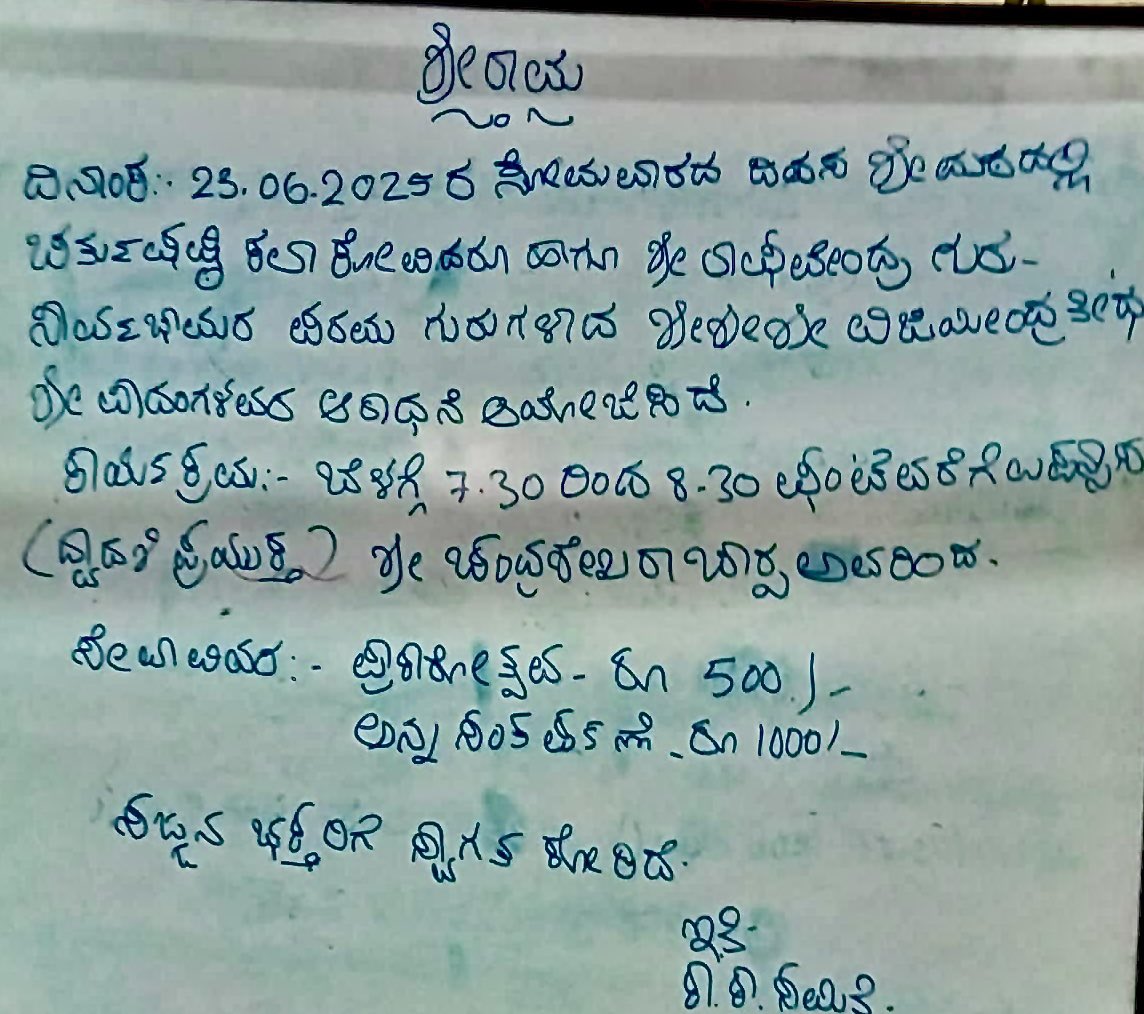 ಶ್ರೀರಾಮ
ದಿನಾಂಕ:- 23.06.2025 ರ ಸೋಮವಾರದ ದಿವಸ ಶ್ರೀ ಮಠದಲ್ಲಿ
ಚತುಃಷಷ್ಠಿ ಕಲಾ ಕೋವಿದರೂ ಹಾಗೂ ಶ್ರೀ ರಾಘವೇಂದ್ರ ಗುರು-
ಸಾರ್ವಭೌಮರ ಪರಮ ಗುರುಗಳಾದ ಶ್ರೀಶ್ರೀಶ್ರೀ ವಿಜಯೀಂದ್ರ ತೀರ್ಥ
ಶ್ರೀ ಪಾದಂಗಳವರ ಆರಾಧನೆ ಆಯೋಜಿಸಿದೆ.
ಕಾರ್ಯಕ್ರಮ:- ಬೆಳಗ್ಗೆ 7.30 ರಿಂದ 8.30 ಘಂಟೆವರೆಗೆ ಉಪನ್ಯಾಸ
(ದ್ವಾದಶಿ ಪ್ರಯುಕ್ತ) ಶ್ರೀ ಚಂದ್ರಶೇಖರಾಚಾರ್ಯ ಅವರಿಂದ.
ಸೇವಾ ವಿವರ:- ಪ್ರಾಕಾರೋತ್ಸವ - ರೂ 500./-
ಅನ್ನ ಸಂತರ್ಪಣೆ - ರೂ 1000/-
ಸಜ್ಜನ ಭಕ್ತರಿಗೆ ಸ್ವಾಗತ ಕೋರಿದೆ.
ಇತಿ
ಕಾ. ಕಾ. ಸಮಿತಿ.